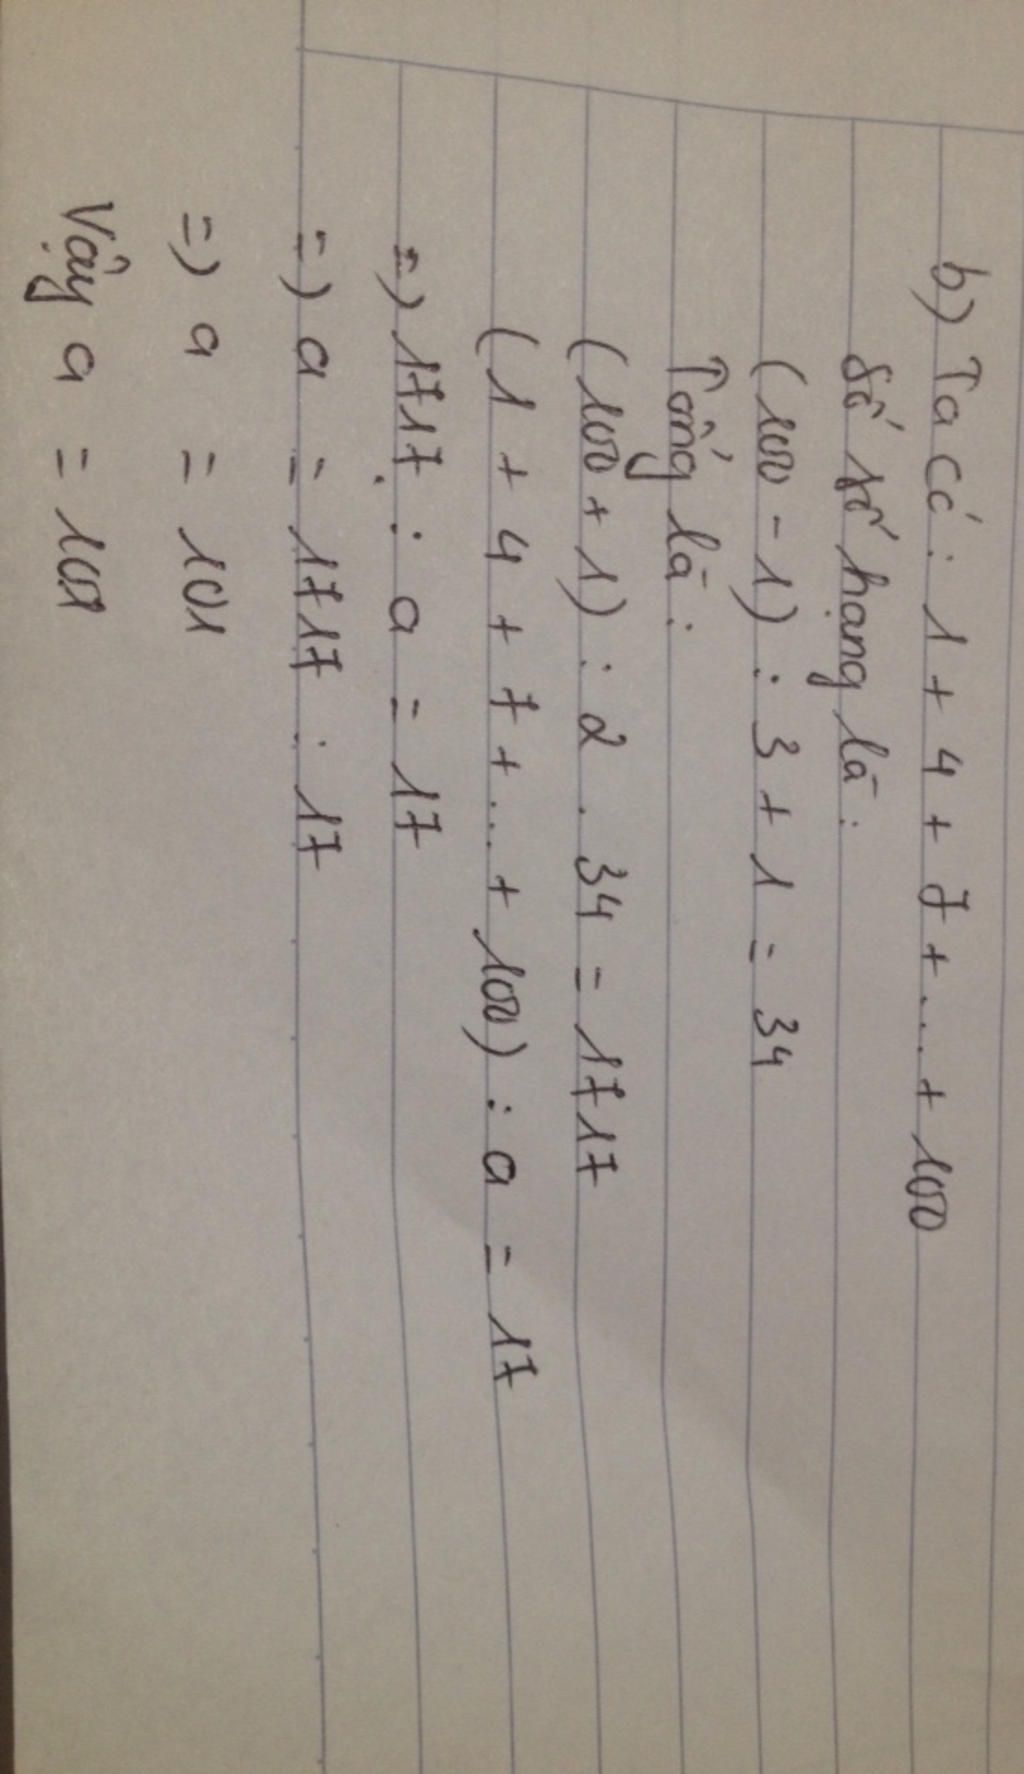 b) Ta có: 1 + 4 + 7 + ... + 100
Số số hạng là:
(100 - 1) : 3 + 1 = 34
Tổng là:
(100 + 1) : 2 . 34 = 1717
(1 + 4 + 7 + ... + 100) : a = 17
=) 1717 : a = 17
=) a = 1717 : 17
=) a = 101
Vậy a = 101